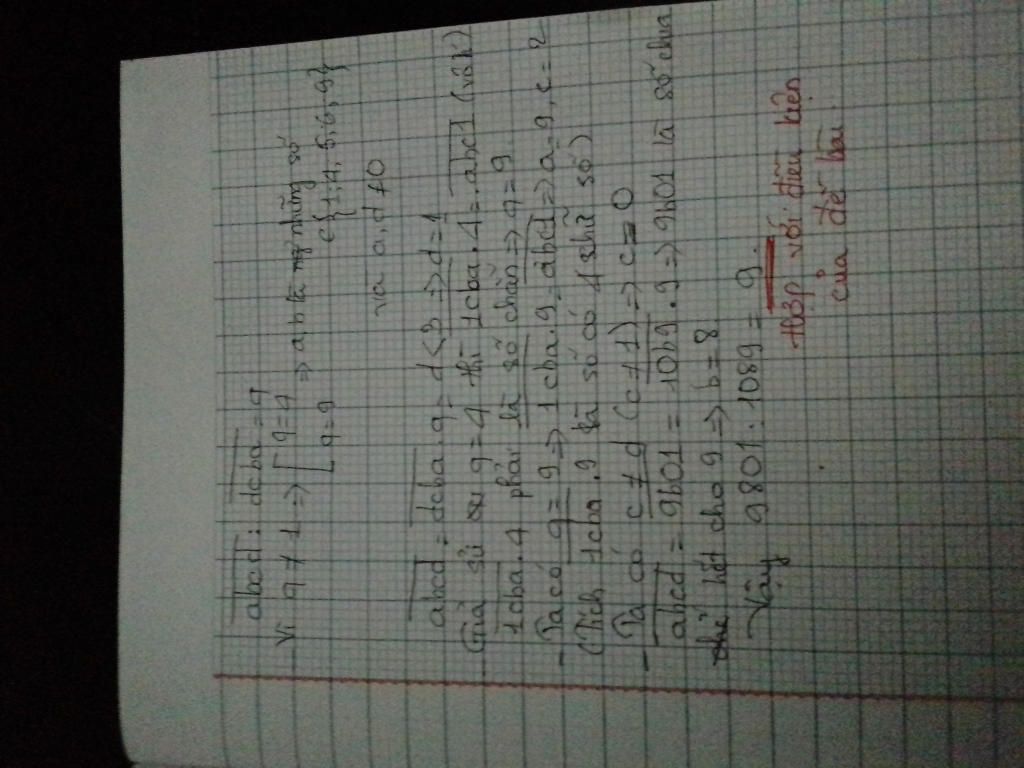 abcd : dcba = q
Vì q ≠ 1 => [ q = 4 => a, b là những số
[ q = 9 ∈ {1; 4; 5; 6; 9}
và a, d ≠ 0
abcd = dcba . q = d < 3 => d = 1
- Giả sử q = 4 thì 1cba . 4 = abc1 (vô lí)
1cba . 4 phải là số chẵn => q = 9
- Ta có q = 9 => 1cba . 9 = abcd => a = 9, c = ?
(Tích 1cba . 9 là số có 4 chữ số)
- Ta có c ≠ d (c ≠ 1) => c = 0
abcd = 9b01 = 10b9 . 9 => 9b01 là số chia
hết cho 9 => b = 8
Vậy 9801 : 1089 = 9.
thợp với điều kiện
của đề bài